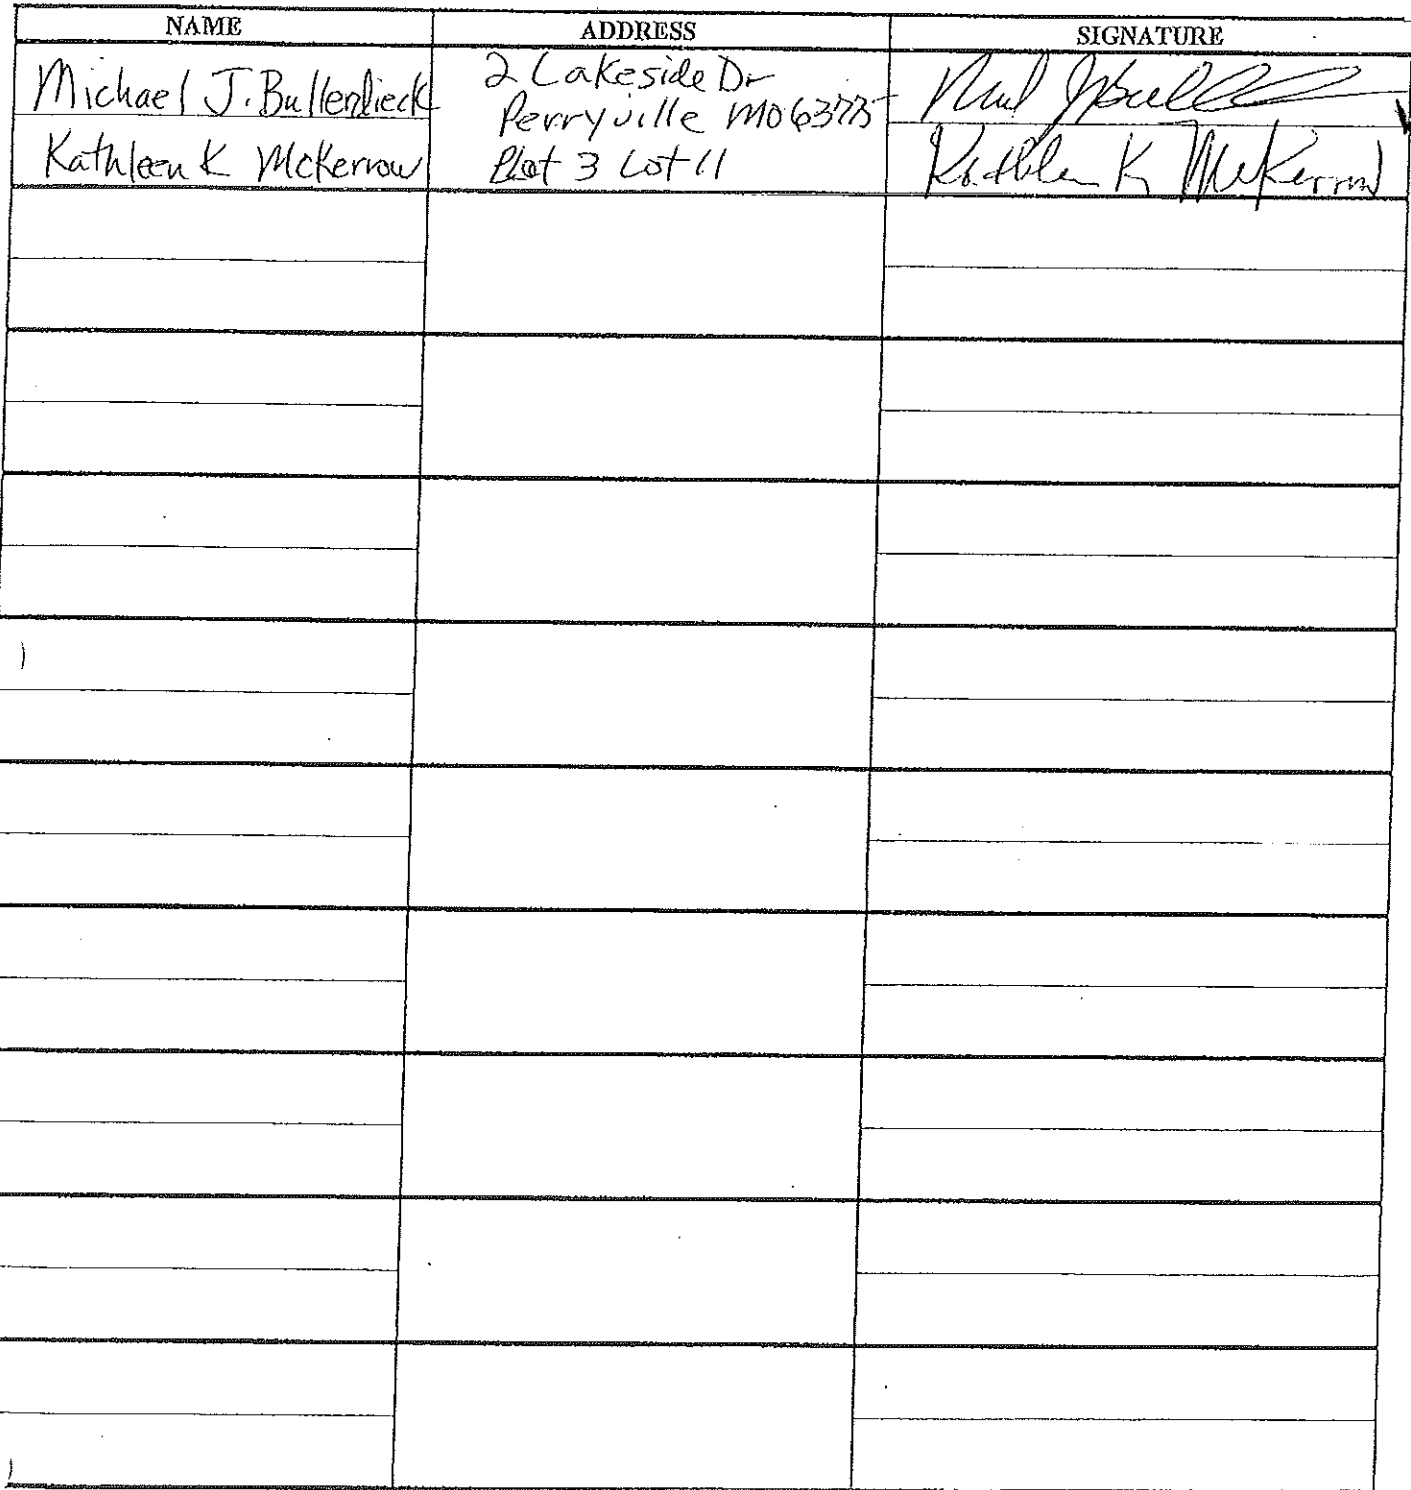 NAME ADDRESS SIGNATURE
Michael J. Bullendieck 2 Lakeside Dr
Perryville MO 63775
Kathleen K McKerrow Plat 3 Lot 11 Kathleen K McKerrow